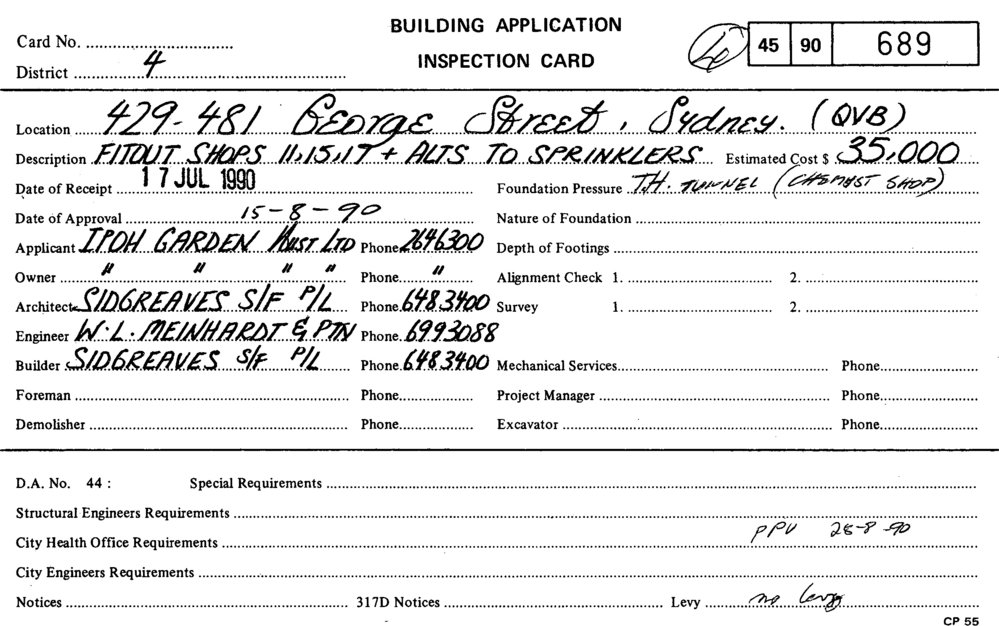 BUILDING APPLICATION
INSPECTION CARD
Card No.
45 90 689
District 4
Location 429-481 GEORGE Street, Sydney. (QVB)
Description FITOUT SHOPS 11,15,17 + ALTS TO SPRINKLERS Estimated Cost $ 35,000
Date of Receipt 17 JUL 1990 Foundation Pressure T.H. TUNNEL (CHEMIST SHOP)
Date of Approval 15-8-90 Nature of Foundation
Applicant IPOH GARDEN AUST LTD Phone 2646300 Depth of Footings
Owner " " " " Phone " Alignment Check 1. 2.
Architect SIDGREAVES S/F P/L Phone 6483400 Survey 1. 2.
Engineer W.L. MEINHARDT & PTN Phone 6993088
Builder SIDGREAVES S/F P/L Phone 6483400 Mechanical Services Phone
Foreman Phone Project Manager Phone
Demolisher Phone Excavator Phone
D.A. No. 44 : Special Requirements
Structural Engineers Requirements
PPU 28-8-90
City Health Office Requirements
City Engineers Requirements
Notices 317D Notices Levy no levy
CP 55